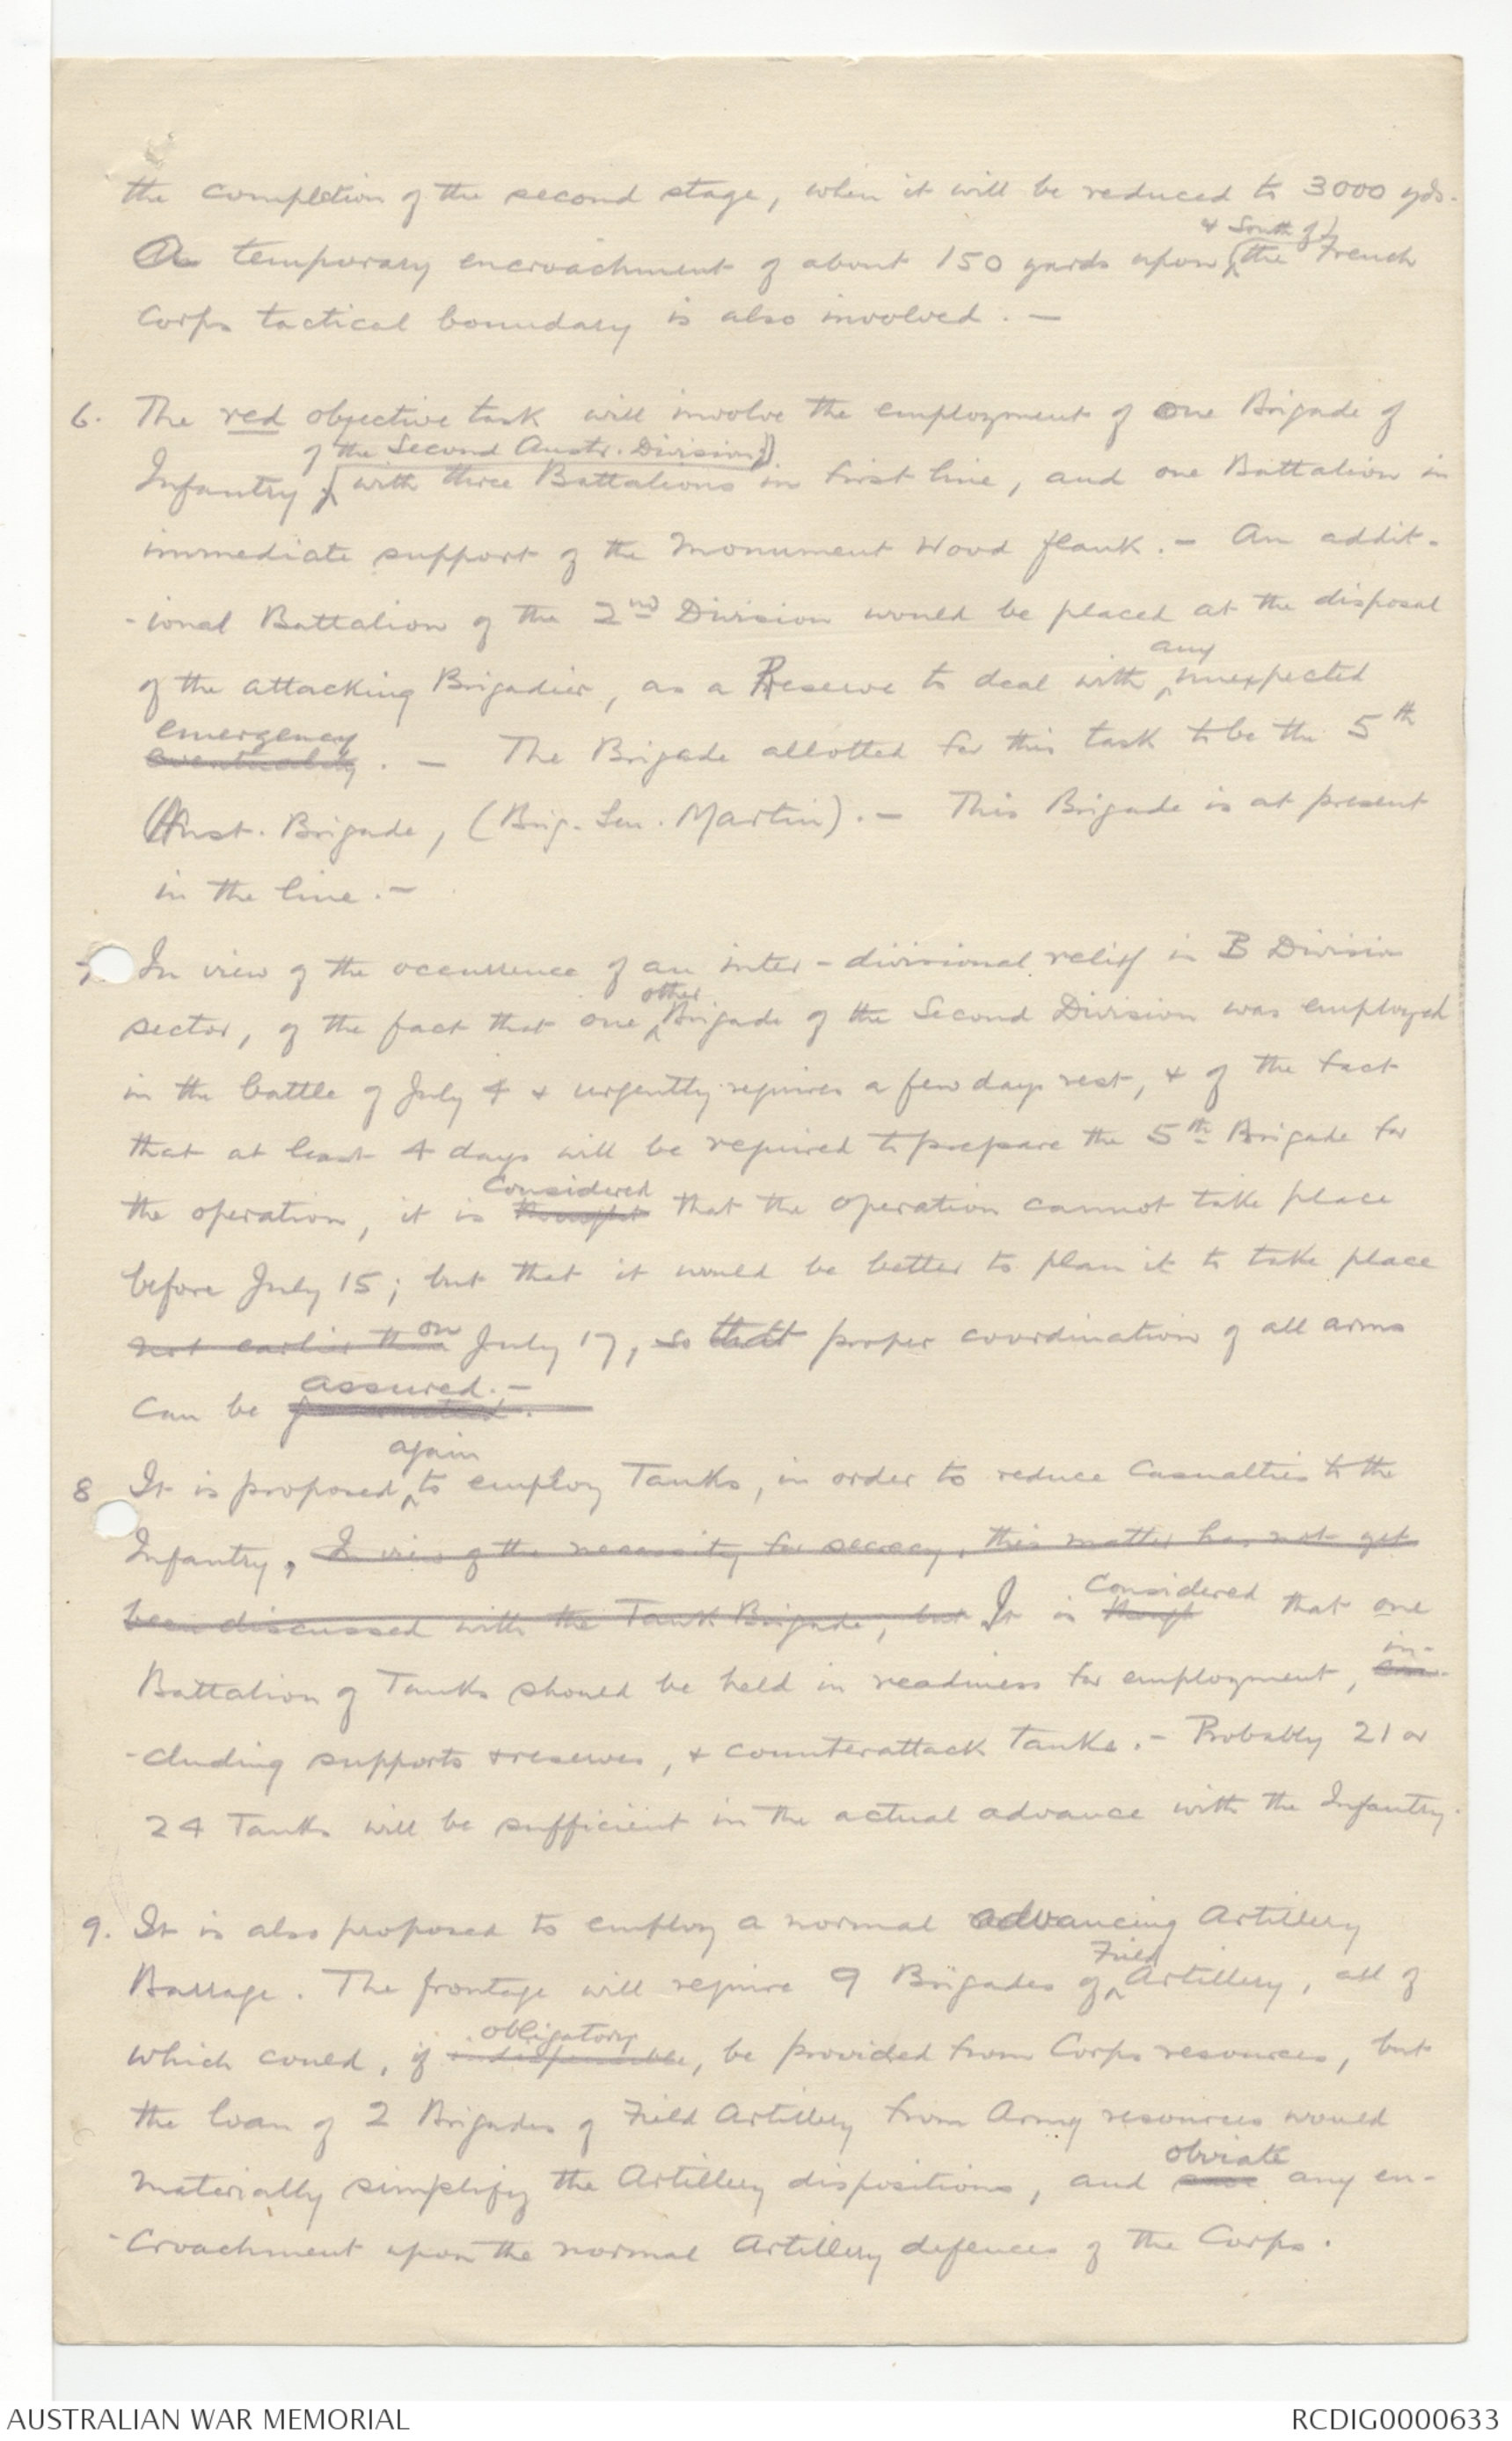 the completion of the second stage, when it will be reduced to 3000 yds.
& South of
A temporary encroachment of about 150 yards upon the French
Corps tactical boundary is also involved. —
6. The red objective task will involve the employment of one Brigade of
of the Second Austr. Division,
Infantry, with three Battalions in first line, and one Battalion in
immediate support of the Monument Wood flank. – An addit-
-ional Battalion of the 2nd Division would be placed at the disposal
any
of the attacking Brigadier, as a Reserve to deal with unexpected
emergency
eventuality. — The Brigade allotted for this task to be the 5th
Aust. Brigade, (Brig. Gen. Martin). – This Brigade is at present
in the line. –
7. In view of the occurrence of an inter-divisional relief in B Division
other
sector, of the fact that one Brigade of the Second Division was employed
in the battle of July 4 & urgently requires a few days rest, & of the fact
that at least 4 days will be required to prepare the 5th Brigade for
considered
the operation, it is thought that the operation cannot take place
before July 15; but that it would be better to plan it to take place
on
not earlier than July 17, so that proper coordination of all arms
assured. –
can be
again
8 It is proposed to employ Tanks, in order to reduce casualties to the
Infantry, In view of the necessity for secrecy, this matter has not yet
considered
been discussed with the Tank Brigade, but It is thought that one
in-
Battalion of Tanks should be held in readiness for employment,
-cluding supports & reserves, & counterattack tanks. – Probably 21 or
24 Tanks will be sufficient in the actual advance with the Infantry.
9. It is also proposed to employ a normal advancing Artillery
Field
Barrage. The frontage will require 9 Brigades of Artillery, all of
obligatory
which could, if indispensable, be provided from Corps resources, but
the loan of 2 Brigades of Field Artillery from Army resources would
obviate
materially simplify the Artillery dispositions, and save any en-
-croachment upon the normal Artillery defences of the Corps.
AUSTRALIAN WAR MEMORIAL
RCDIG0000633